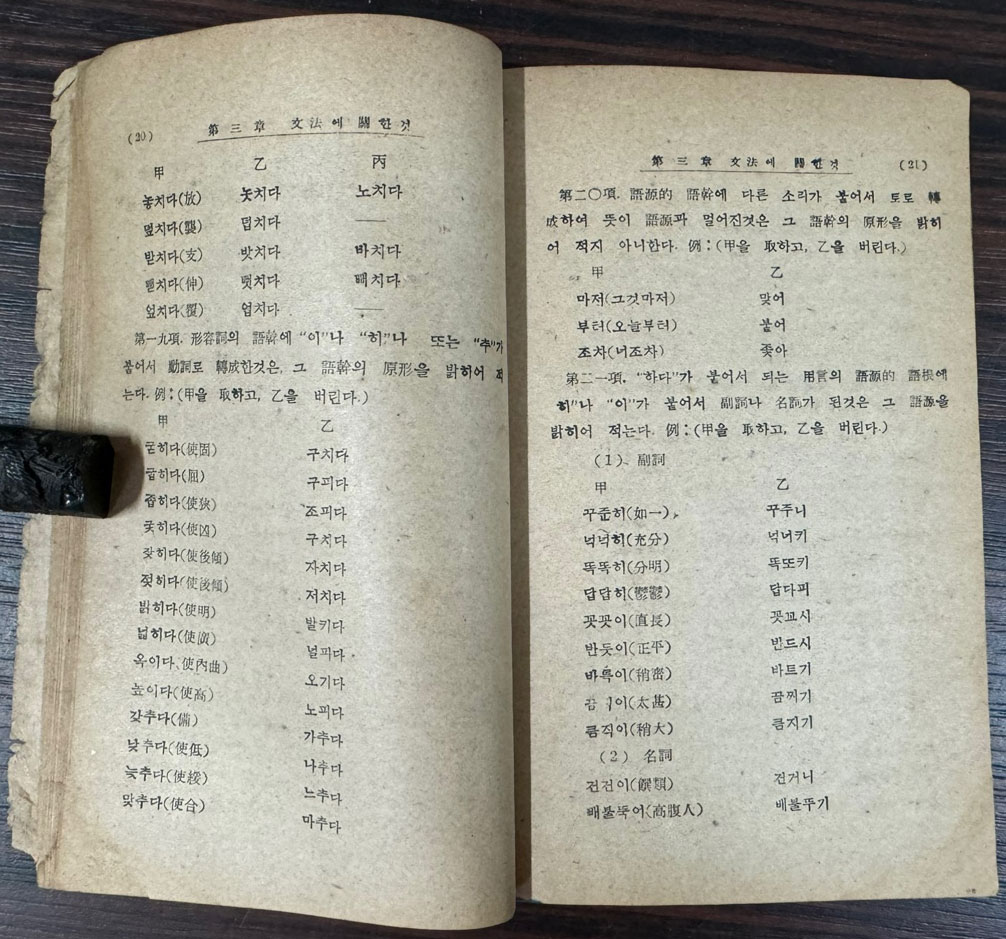 (20) 第三章 文法에 關한것
甲 乙 丙
놓치다(放) 놋치다 노치다
덮치다(襲) 덥치다 ——
받치다(支) 밧치다 바치다
뻗치다(伸) 뻣치다 뻐치다
엎치다(覆) 업치다 ——
第一九項. 形容詞의 語幹에 “이”나 “히”나 또는 “추”가
붙어서 動詞로 轉成한것은, 그 語幹의 原形을 밝히어 적
는다. 例:(甲을 取하고, 乙을 버린다.)
甲 乙
굳히다(使固) 구치다
굽히다(屈) 구피다
좁히다(使狹) 조피다
궂히다(使凶) 구치다
잦히다(使後傾) 자치다
젖히다(使後傾) 저치다
밝히다(使明) 발키다
넓히다(使廣) 널피다
옥이다(使內曲) 오기다
높이다(使高) 노피다
갖추다(備) 가추다
낮추다(使低) 나추다
늦추다(使緩) 느추다
맞추다(使合) 마추다
第三章 文法에 關한것 (21)
第二〇項. 語源的 語幹에 다른 소리가 붙어서 토로 轉
成하여 뜻이 語源과 멀어진것은 그 語幹의 原形을 밝히
어 적지 아니한다. 例:(甲을 取하고, 乙을 버린다.)
甲 乙
마저(그것마저) 맞어
부터(오늘부터) 붙어
조차(너조차) 좇아
第二一項. “하다”가 붙어서 되는 用言의 語源的 語根에
히”나 “이”가 붙어서 副詞나 名詞가 된것은 그 語源을
밝히어 적는다. 例:(甲을 取하고, 乙을 버린다.)
(1) 副詞
甲 乙
꾸준히(如一) 꾸주니
넉넉히(充分) 넉너키
똑똑히(分明) 똑또키
답답히(鬱鬱) 답다피
꼿꼿이(直長) 꼿꼬시
반듯이(正平) 반드시
바특이(稍密) 바트기
이(太甚) 끔찌기
큼직이(稍大) 큼지기
(2) 名詞
건건이(饌類) 건거니
배불뚝이(高腹人) 배불뚜기